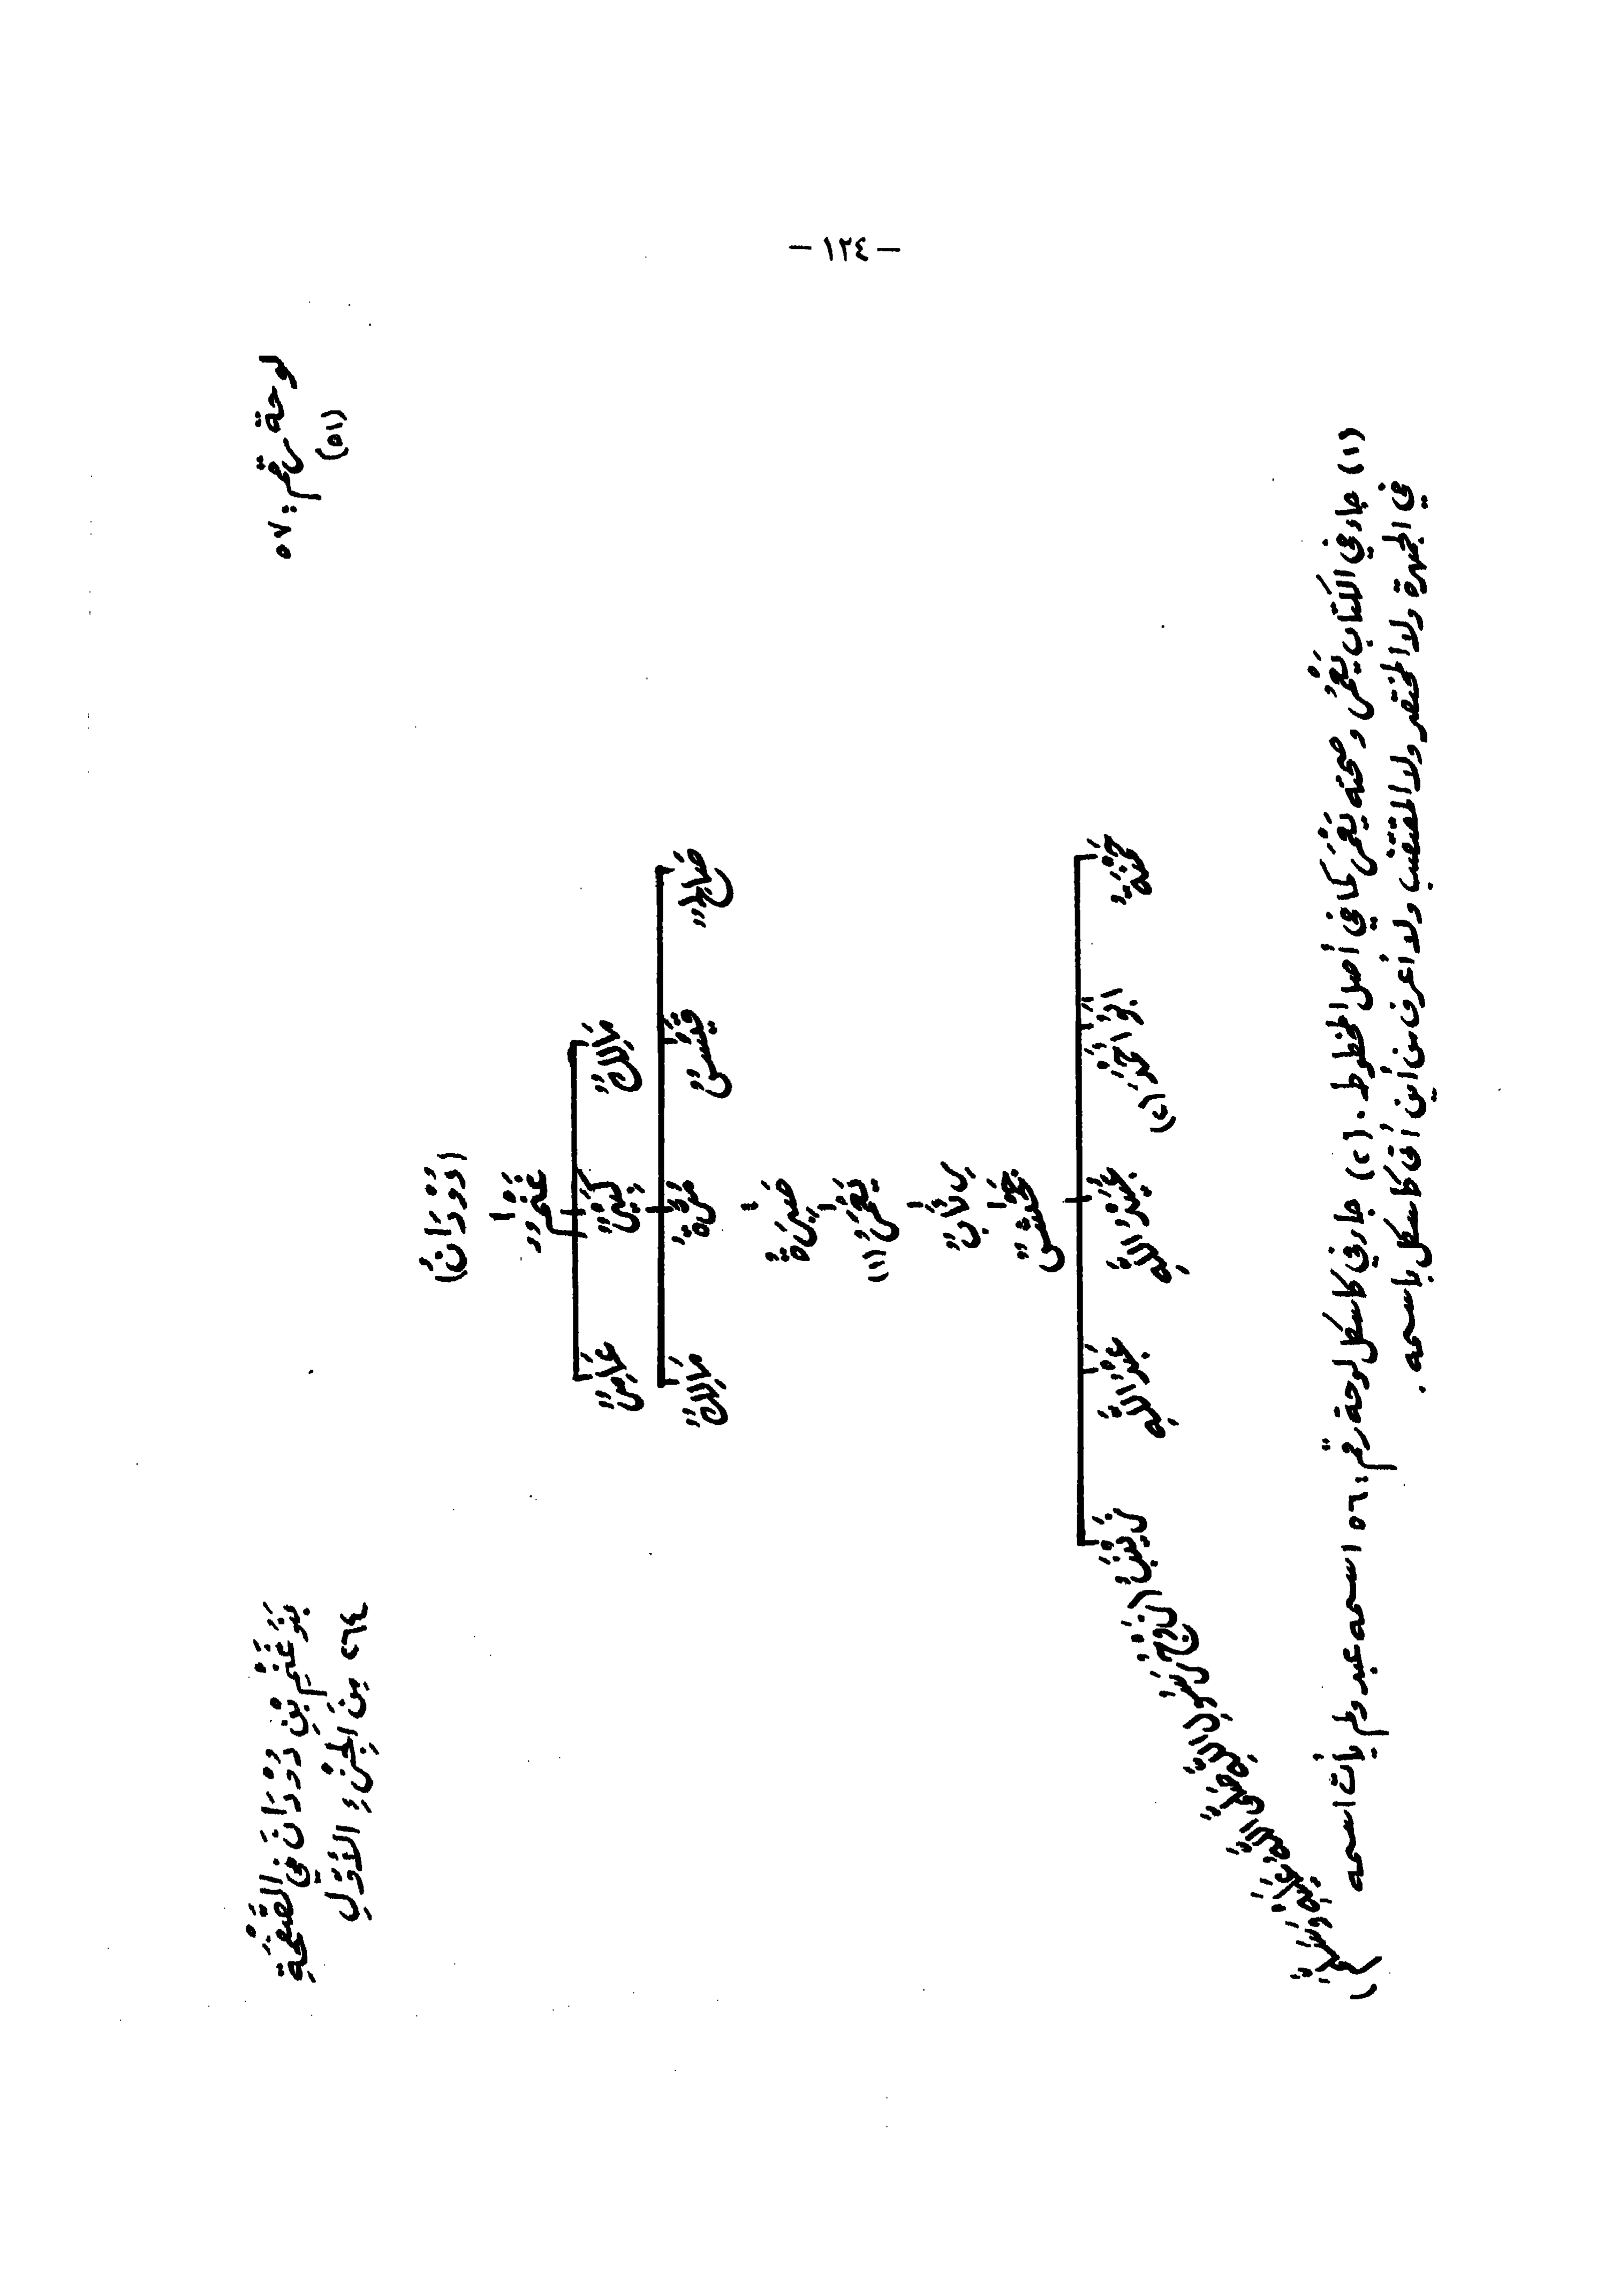 - ١٢٤ -
لوحة رقم: ٥٧
(٥١)
بَنُو غَنْمِ بْنِ دُوْدَانَ فِي الصَّفْحَةِ
٢٦٤ مِنَ الجُزْءِ الأَوَّلِ
(دُوْدَانُ)
غَنْمٌ
مَالِكٌ كَبِيْرٌ عَامِرٌ
صَالِحٌ قَيْسٌ مُرَّةُ مَالِكٌ
صَبِرَةُ
يَعْمَرُ (١)
رِئَابٌ
جَحْشٌ
حَمْنَةُ أَبُو أَحْمَدَ (٢) عُبَيْدُ اللَّهِ عَبْدُ اللَّهِ زَيْنَبُ (زَوْجُ رَسُولِ اللَّهِ صَلَّى اللَّهُ عَلَيْهِ وَسَلَّمَ)
(١) جاء في الكتاب يَعْمُر وصحته يَعْمَر كما في أصل المخطوط . (٢) جاء في كاسكل لوحة رقم: ٥٦ اسمه عبد ولم يأت اسمه
في الجمهرة ولا المختصر ولا المقتضب ولا أعرف من أين أتى كاسكل باسمه .